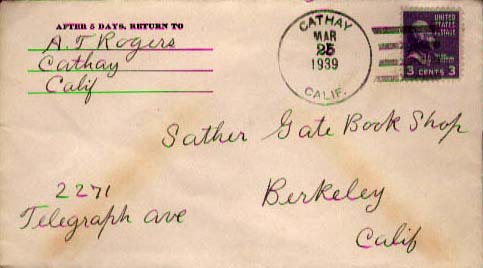 AFTER 5 DAYS, RETURN TO
A. T Rogers
Cathay
Calif
CATHAY
MAR
25
1939
CALIF.
UNITED
STATES
POSTAGE
3 CENTS 3
Sather Gate Book Shop
2271
Telegraph ave
Berkeley
Calif